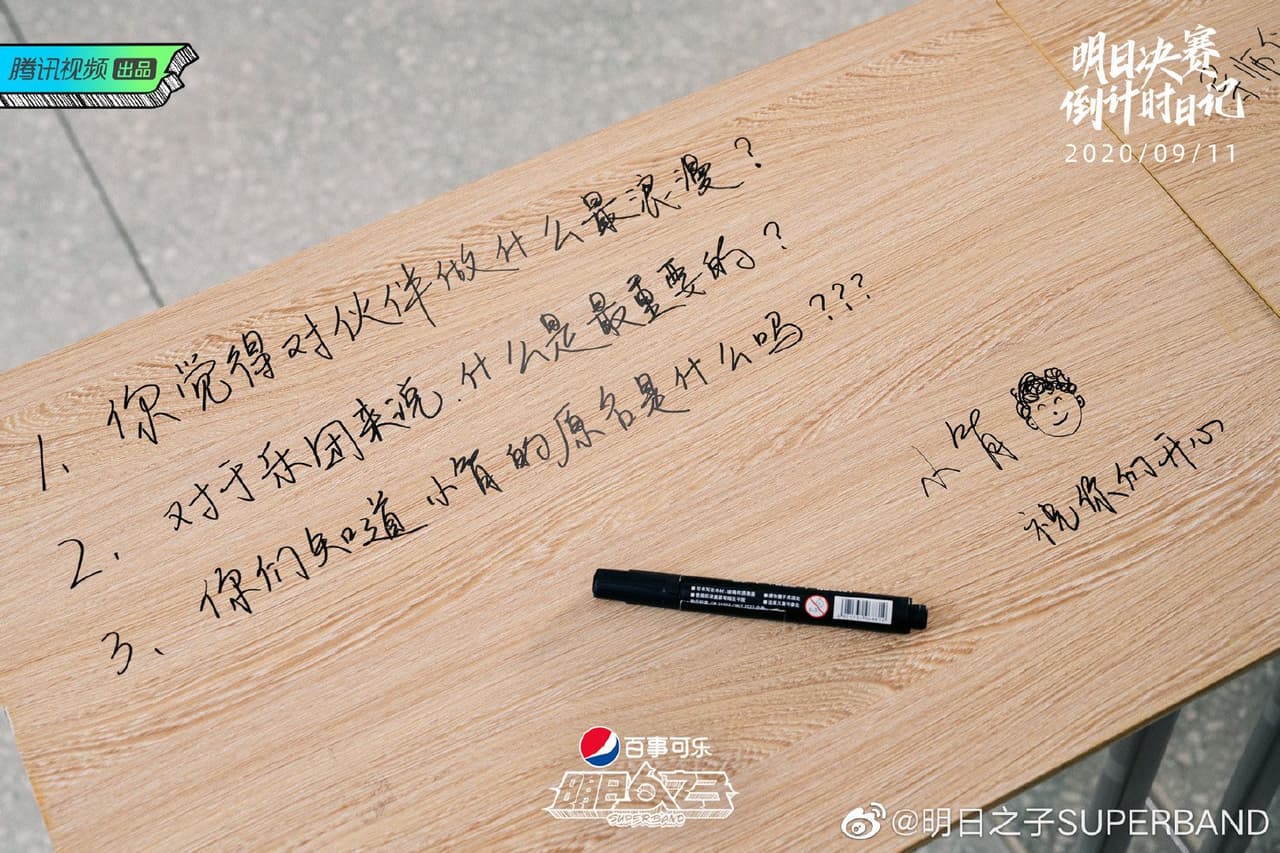 腾讯视频 出品
明日决赛
倒计时日记
2020/09/11
1、你觉得对伙伴做什么最浪漫？
2、对于乐团来说，什么是最重要的？
3、你们知道小肖的原名是什么吗？？？
小肖
祝你们开心
百事可乐
明日之子
SUPERBAND
@明日之子SUPERBAND